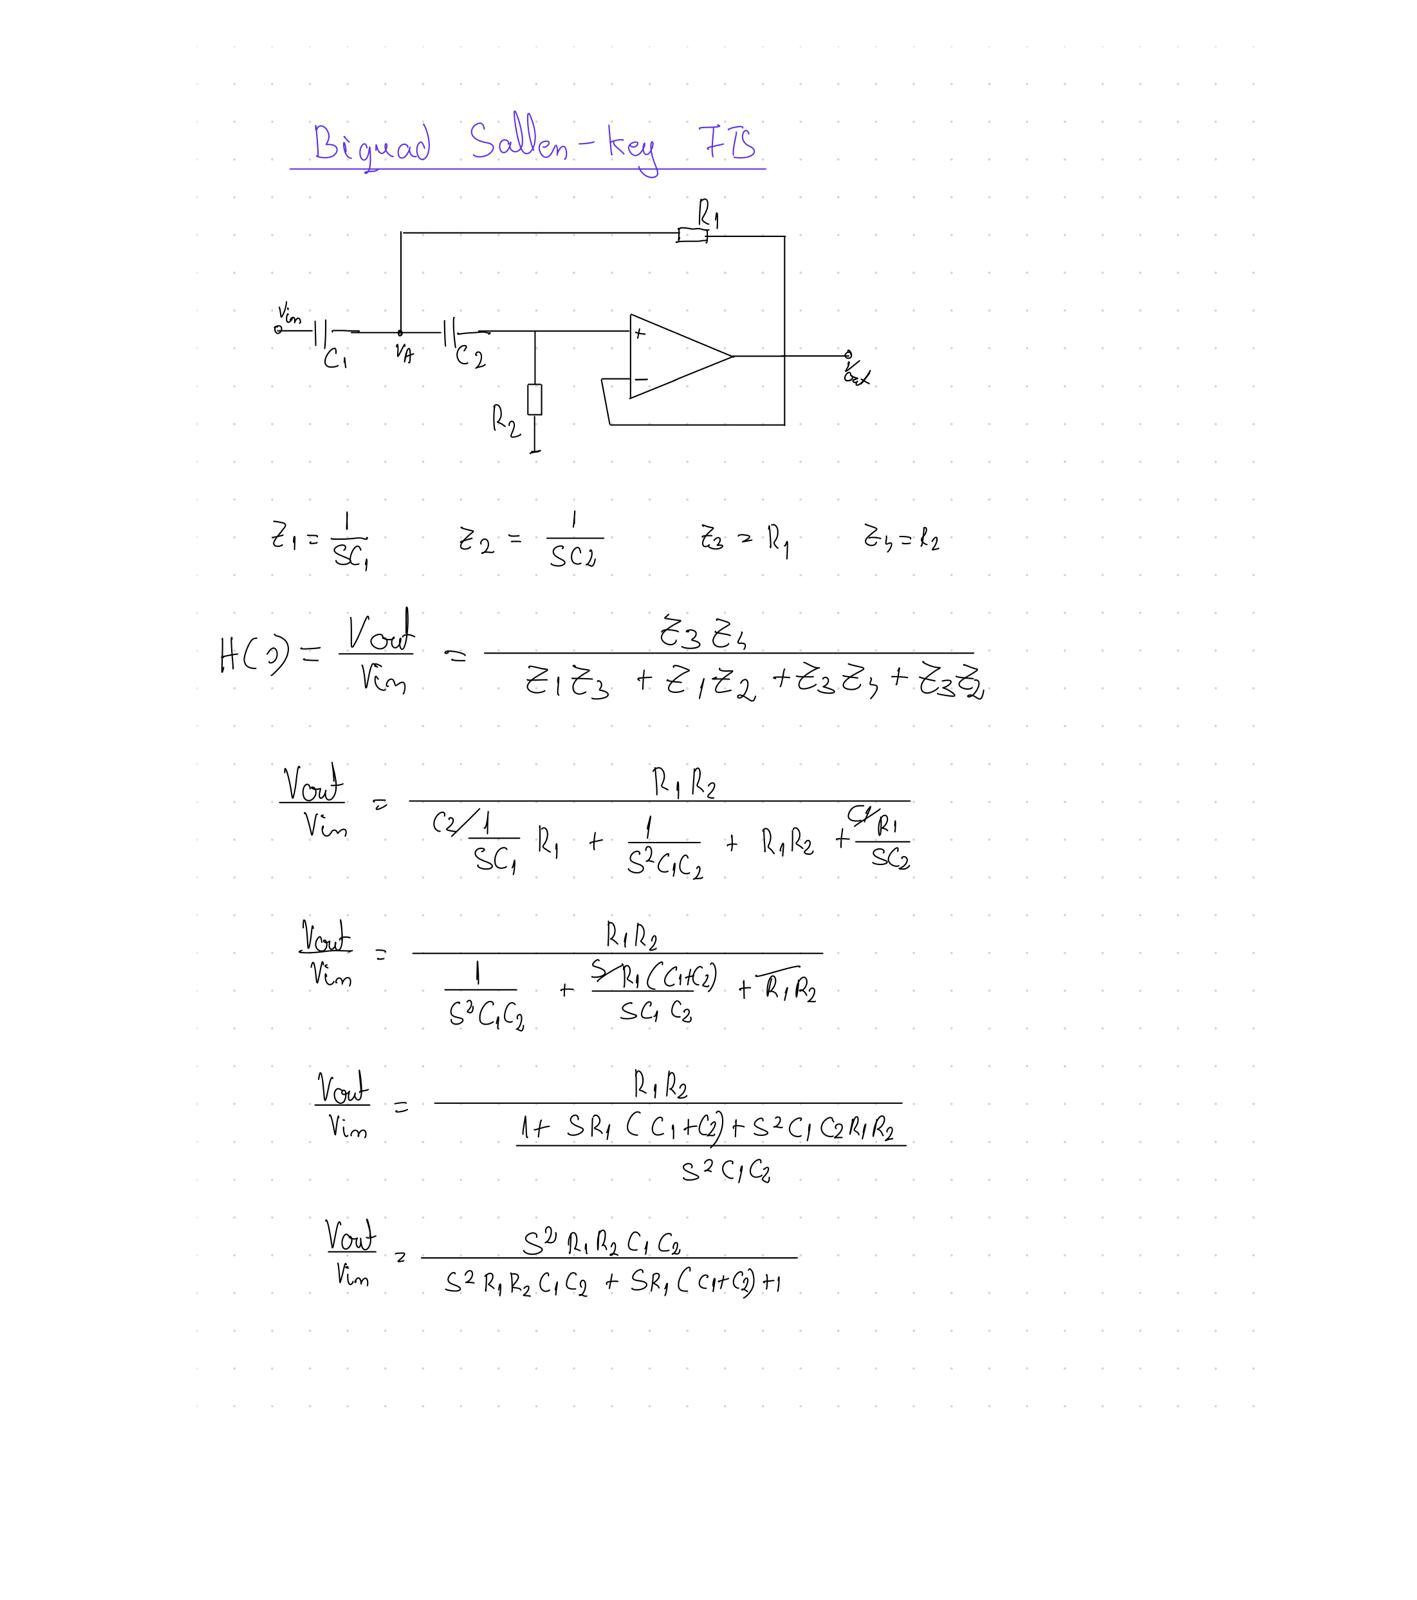 Biquad Sallen-key FTS
R1
Vin
C1
VA
C2
+
−
Vout
R2
Z1 = 1/SC1 Z2 = 1/SC2 Z3 = R1 Z4 = R2
H(s) = Vout/Vin = Z3 Z4 / (Z1Z3 + Z1Z2 + Z3Z4 + Z3Z2)
Vout/Vin = R1R2 / (C2/ 1/SC1 R1 + 1/S²C1C2 + R1R2 + C1/ R1/SC2)
Vout/Vin = R1R2 / (1/S²C1C2 + S/R1(C1+C2)/SC1C2 + R1R2)
Vout/Vin = R1R2 / ((1 + SR1(C1+C2) + S²C1C2R1R2) / S²C1C2)
Vout/Vin = S²R1R2C1C2 / (S²R1R2C1C2 + SR1(C1+C2)+1)